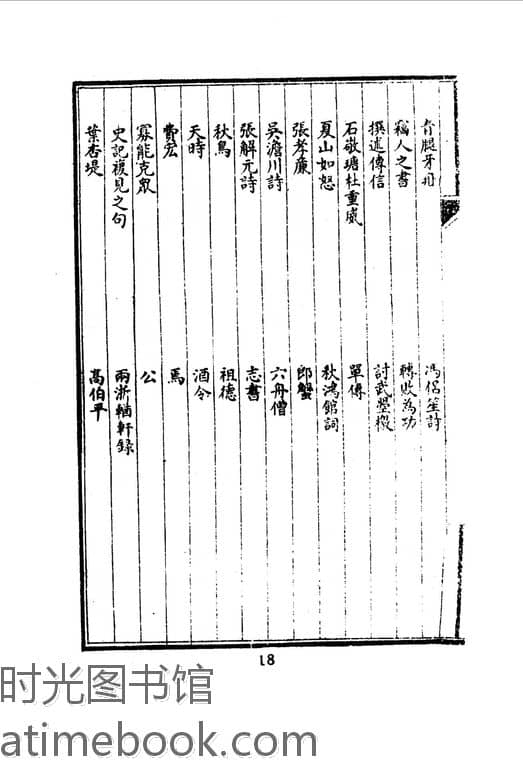 骨腿牙冊 馮侶笙詩
竊人之書 轉敗為功
撰述傳信 討武曌檄
石敬瑭杜重威 單傳
夏山如怒 秋鴻館詞
張孝廉 郎蟹
吳澹川詩 六舟僧
張解元詩 志書
秋鳥 祖德
天時 酒令
費宏 馬
寡能克眾 公
史記複見之句 兩浙輶軒錄
葉杏堤 高伯平
18
时光图书馆
atimebook.com